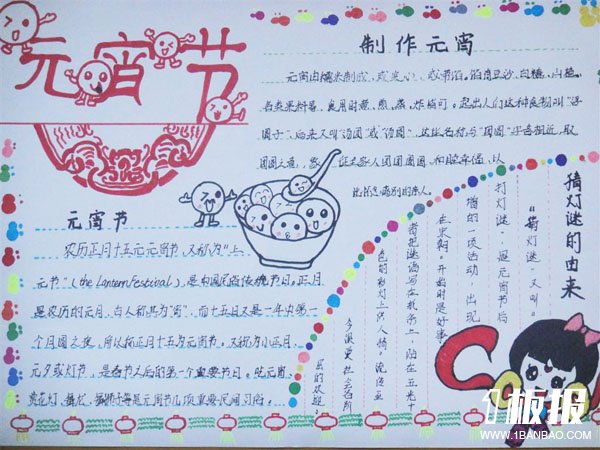 元宵节
制作元宵
元宵由糯米制成，或实心，或带馅。馅有豆沙、白糖、山楂、
各类果料等，食用时煮、煎、蒸、炸皆可。起初人们这种食物叫“浮
圆子”，后来又叫“汤团”或“汤圆”，这些名称与“团圆”字音相近，取
团圆之意，
元宵节
农历正月十五元元宵节，又称为“上
元节”（the Lantern Festival），是中国民俗传统节日。正月
是农历的元月，古人称其为“宵”，而十五日又是一年中第一
个月圆之夜，所以称正月十五为元宵节。又称为小正月、
元夕或灯节，是春节之后的第一个重要节日。吃元宵、
赏花灯、猜灯谜等是元宵节几项重要民间习俗。
猜灯谜的由来
“猜灯谜”又叫“
打灯谜”是元宵节后
增的一项活动，出现
在宋朝。开始时是好事
者把谜语写在纸条上，贴在五光十
色的彩灯上供人猜。
板报
WWW.1BANBAO.COM